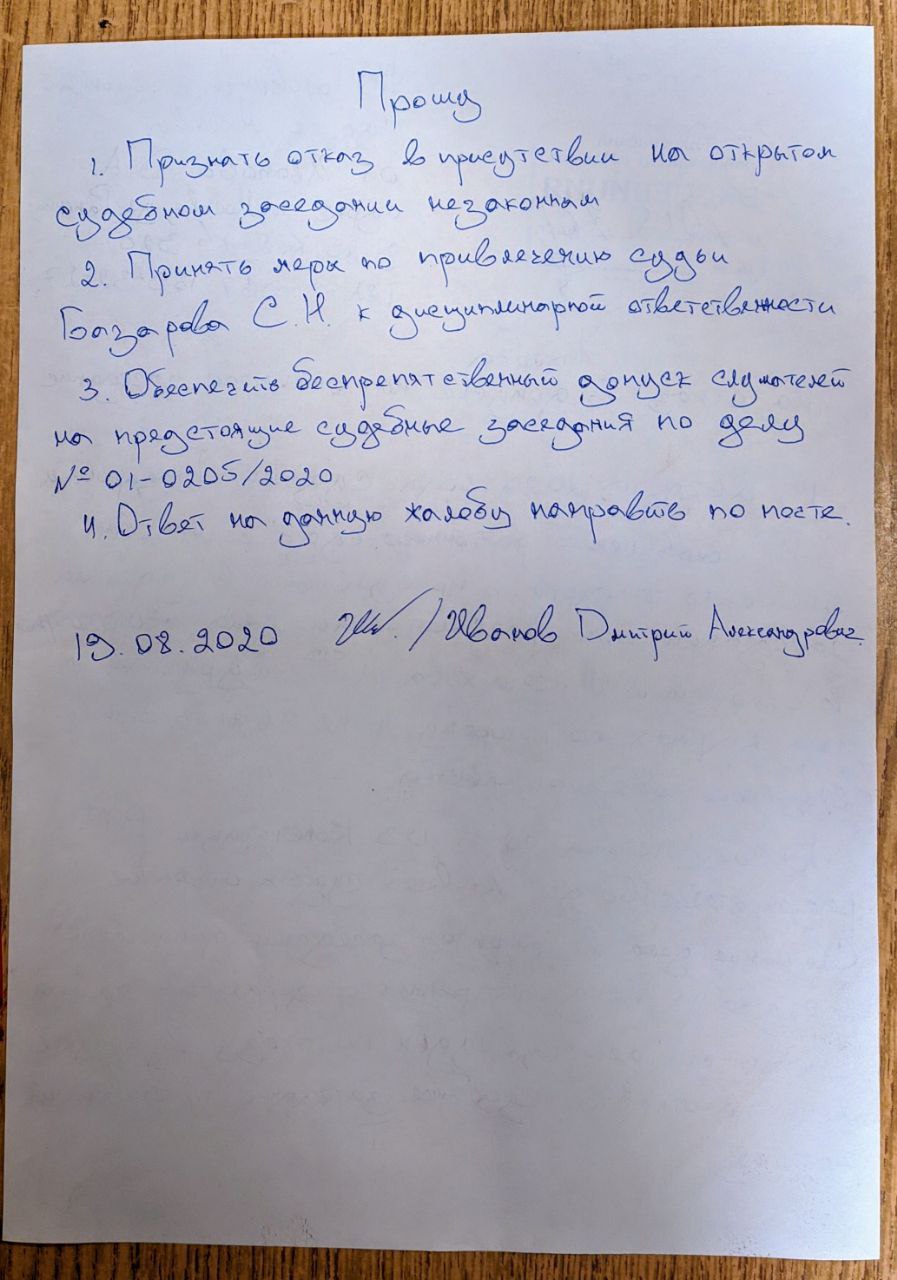 Прошу
1. Признать отказ в присутствии на открытом
судебном заседании незаконным
2. Принять меры по привлечению судьи
Базарова С.Н. к дисциплинарной ответственности
3. Обеспечить беспрепятственный допуск слушателей
на предстоящие судебные заседания по делу
№ 01-0205/2020
4. Ответ на данную жалобу направить по почте.
19.08.2020 /Иванов Дмитрий Александрович